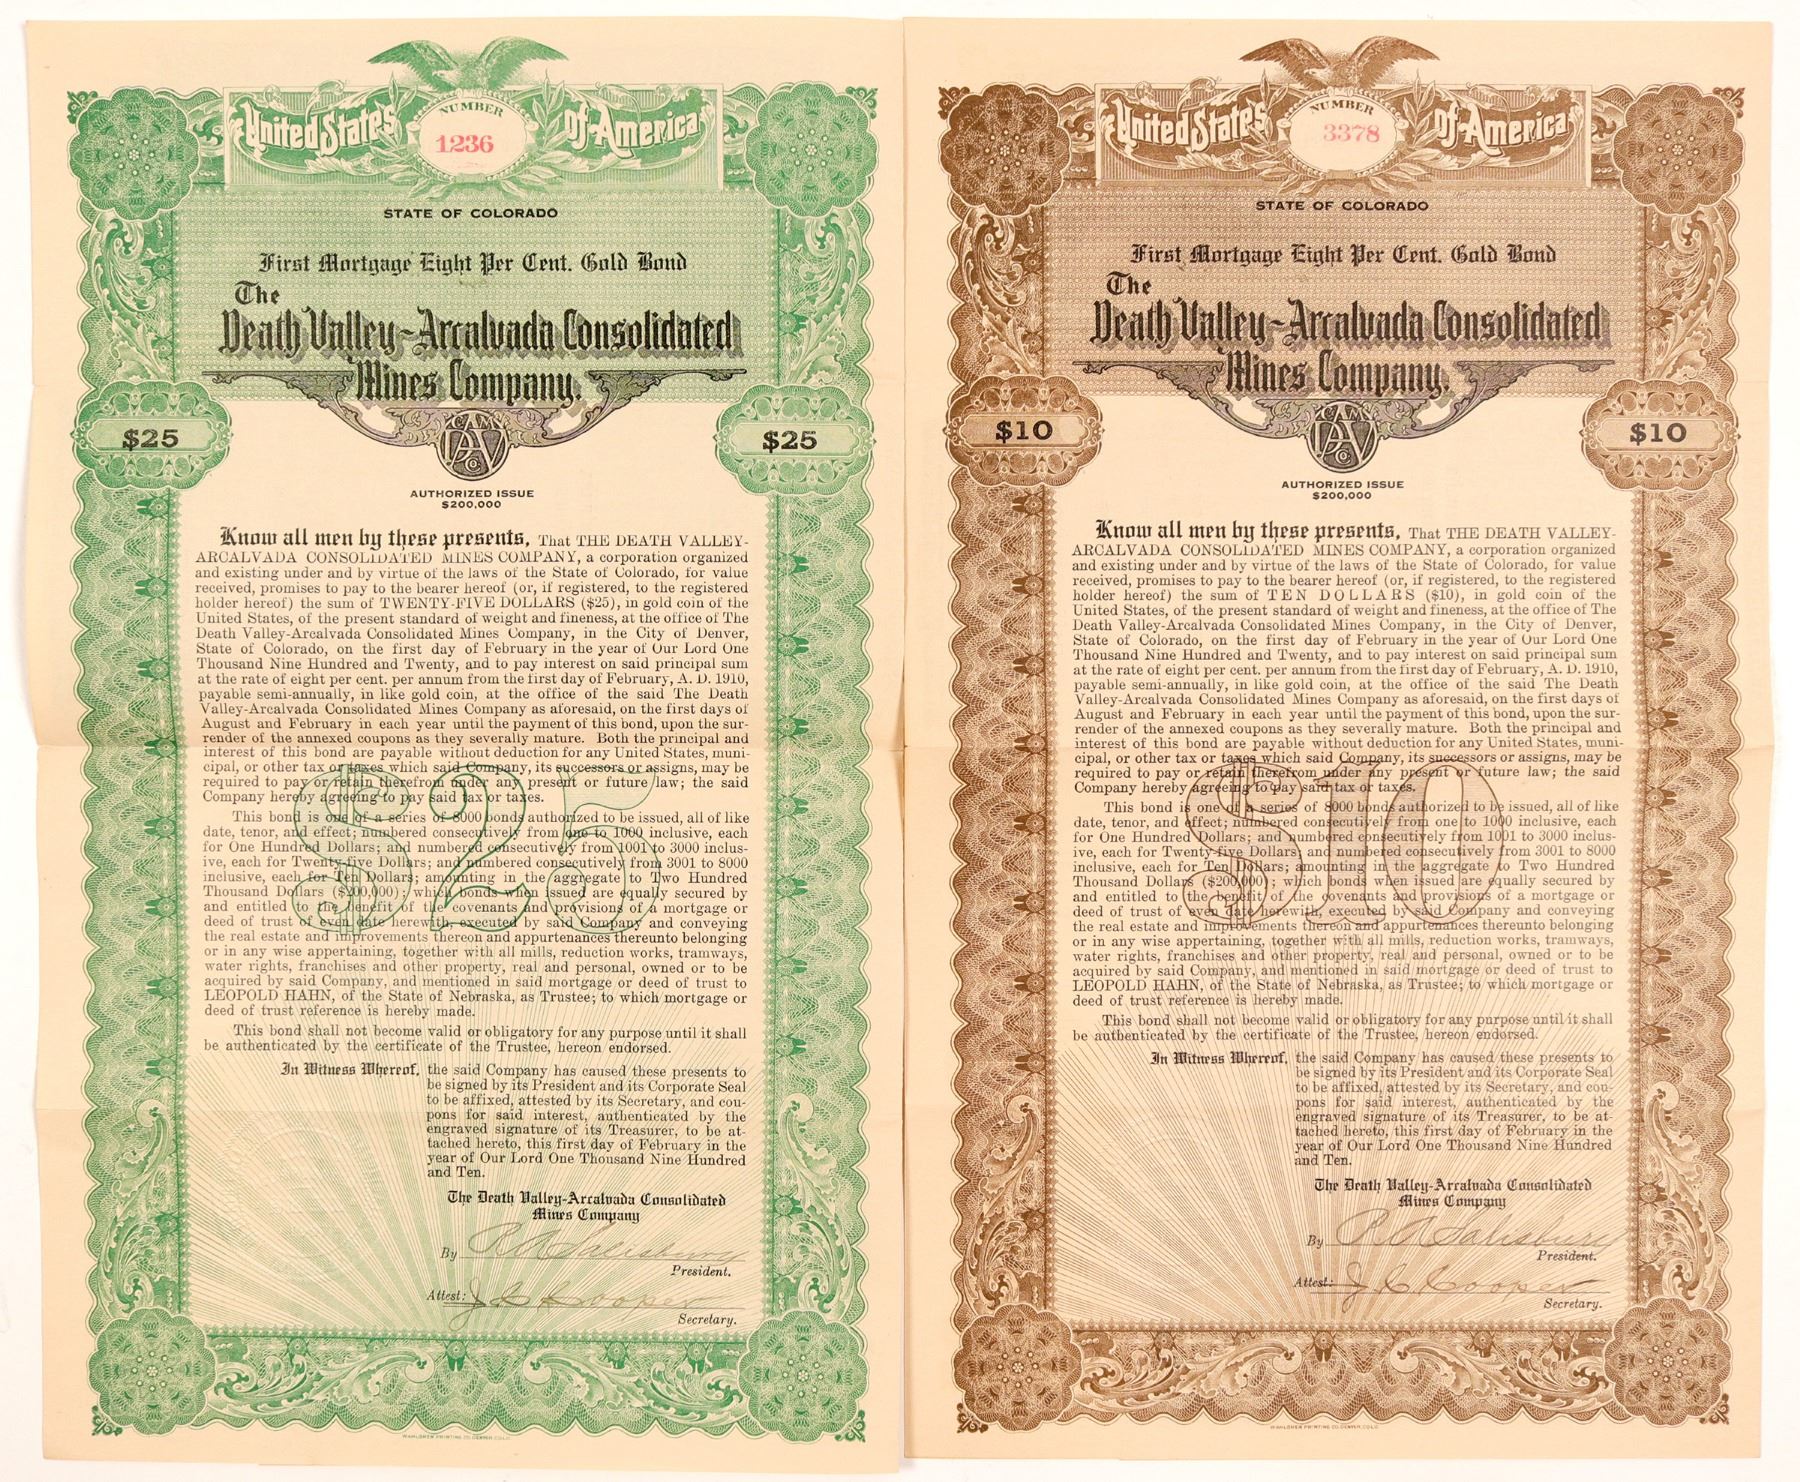 United States of America
NUMBER
1236
STATE OF COLORADO
First Mortgage Eight Per Cent. Gold Bond
The
Death Valley-Arcalvada Consolidated
Mines Company.
$25
$25
AUTHORIZED ISSUE
$200,000
Know all men by these presents, That THE DEATH VALLEY-
ARCALVADA CONSOLIDATED MINES COMPANY, a corporation organized
and existing under and by virtue of the laws of the State of Colorado, for value
received, promises to pay to the bearer hereof (or, if registered, to the registered
holder hereof) the sum of TWENTY-FIVE DOLLARS ($25), in gold coin of the
United States, of the present standard of weight and fineness, at the office of The
Death Valley-Arcalvada Consolidated Mines Company, in the City of Denver,
State of Colorado, on the first day of February in the year of Our Lord One
Thousand Nine Hundred and Twenty, and to pay interest on said principal sum
at the rate of eight per cent. per annum from the first day of February, A. D. 1910,
payable semi-annually, in like gold coin, at the office of the said The Death
Valley-Arcalvada Consolidated Mines Company as aforesaid, on the first days of
August and February in each year until the payment of this bond, upon the sur-
render of the annexed coupons as they severally mature. Both the principal and
interest of this bond are payable without deduction for any United States, muni-
cipal, or other tax or taxes which said Company, its successors or assigns, may be
required to pay or retain therefrom under any present or future law; the said
Company hereby agreeing to pay said tax or taxes.
$25
This bond is one of a series of 8000 bonds authorized to be issued, all of like
date, tenor, and effect; numbered consecutively from one to 1000 inclusive, each
for One Hundred Dollars; and numbered consecutively from 1001 to 3000 inclus-
ive, each for Twenty-five Dollars; and numbered consecutively from 3001 to 8000
inclusive, each for Ten Dollars; amounting in the aggregate to Two Hundred
Thousand Dollars ($200,000); which bonds when issued are equally secured by
and entitled to the benefit of the covenants and provisions of a mortgage or
deed of trust of even date herewith, executed by said Company and conveying
the real estate and improvements thereon and appurtenances thereunto belonging
or in any wise appertaining, together with all mills, reduction works, tramways,
water rights, franchises and other property, real and personal, owned or to be
acquired by said Company, and mentioned in said mortgage or deed of trust to
LEOPOLD HAHN, of the State of Nebraska, as Trustee; to which mortgage or
deed of trust reference is hereby made.
This bond shall not become valid or obligatory for any purpose until it shall
be authenticated by the certificate of the Trustee, hereon endorsed.
In Witness Whereof, the said Company has caused these presents to
be signed by its President and its Corporate Seal
to be affixed, attested by its Secretary, and cou-
pons for said interest, authenticated by the
engraved signature of its Treasurer, to be at-
tached hereto, this first day of February in the
year of Our Lord One Thousand Nine Hundred
and Ten.
The Death Valley-Arcalvada Consolidated
Mines Company
By R A Salisbury
President.
Attest: J C Cooper
Secretary.
WAHLGREN PRINTING CO. DENVER, COLO.
United States of America
NUMBER
3378
STATE OF COLORADO
First Mortgage Eight Per Cent. Gold Bond
The
Death Valley-Arcalvada Consolidated
Mines Company.
$10
$10
AUTHORIZED ISSUE
$200,000
Know all men by these presents, That THE DEATH VALLEY-
ARCALVADA CONSOLIDATED MINES COMPANY, a corporation organized
and existing under and by virtue of the laws of the State of Colorado, for value
received, promises to pay to the bearer hereof (or, if registered, to the registered
holder hereof) the sum of TEN DOLLARS ($10), in gold coin of the
United States, of the present standard of weight and fineness, at the office of The
Death Valley-Arcalvada Consolidated Mines Company, in the City of Denver,
State of Colorado, on the first day of February in the year of Our Lord One
Thousand Nine Hundred and Twenty, and to pay interest on said principal sum
at the rate of eight per cent. per annum from the first day of February, A. D. 1910,
payable semi-annually, in like gold coin, at the office of the said The Death
Valley-Arcalvada Consolidated Mines Company as aforesaid, on the first days of
August and February in each year until the payment of this bond, upon the sur-
render of the annexed coupons as they severally mature. Both the principal and
interest of this bond are payable without deduction for any United States, muni-
cipal, or other tax or taxes which said Company, its successors or assigns, may be
required to pay or retain therefrom under any present or future law; the said
Company hereby agreeing to pay said tax or taxes.
$10
This bond is one of a series of 8000 bonds authorized to be issued, all of like
date, tenor, and effect; numbered consecutively from one to 1000 inclusive, each
for One Hundred Dollars; and numbered consecutively from 1001 to 3000 inclus-
ive, each for Twenty-five Dollars; and numbered consecutively from 3001 to 8000
inclusive, each for Ten Dollars; amounting in the aggregate to Two Hundred
Thousand Dollars ($200,000); which bonds when issued are equally secured by
and entitled to the benefit of the covenants and provisions of a mortgage or
deed of trust of even date herewith, executed by said Company and conveying
the real estate and improvements thereon and appurtenances thereunto belonging
or in any wise appertaining, together with all mills, reduction works, tramways,
water rights, franchises and other property, real and personal, owned or to be
acquired by said Company, and mentioned in said mortgage or deed of trust to
LEOPOLD HAHN, of the State of Nebraska, as Trustee; to which mortgage or
deed of trust reference is hereby made.
This bond shall not become valid or obligatory for any purpose until it shall
be authenticated by the certificate of the Trustee, hereon endorsed.
In Witness Whereof, the said Company has caused these presents to
be signed by its President and its Corporate Seal
to be affixed, attested by its Secretary, and cou-
pons for said interest, authenticated by the
engraved signature of its Treasurer, to be at-
tached hereto, this first day of February in the
year of Our Lord One Thousand Nine Hundred
and Ten.
The Death Valley-Arcalvada Consolidated
Mines Company
By R A Salisbury
President.
Attest: J C Cooper
Secretary.
WAHLGREN PRINTING CO. DENVER, COLO.